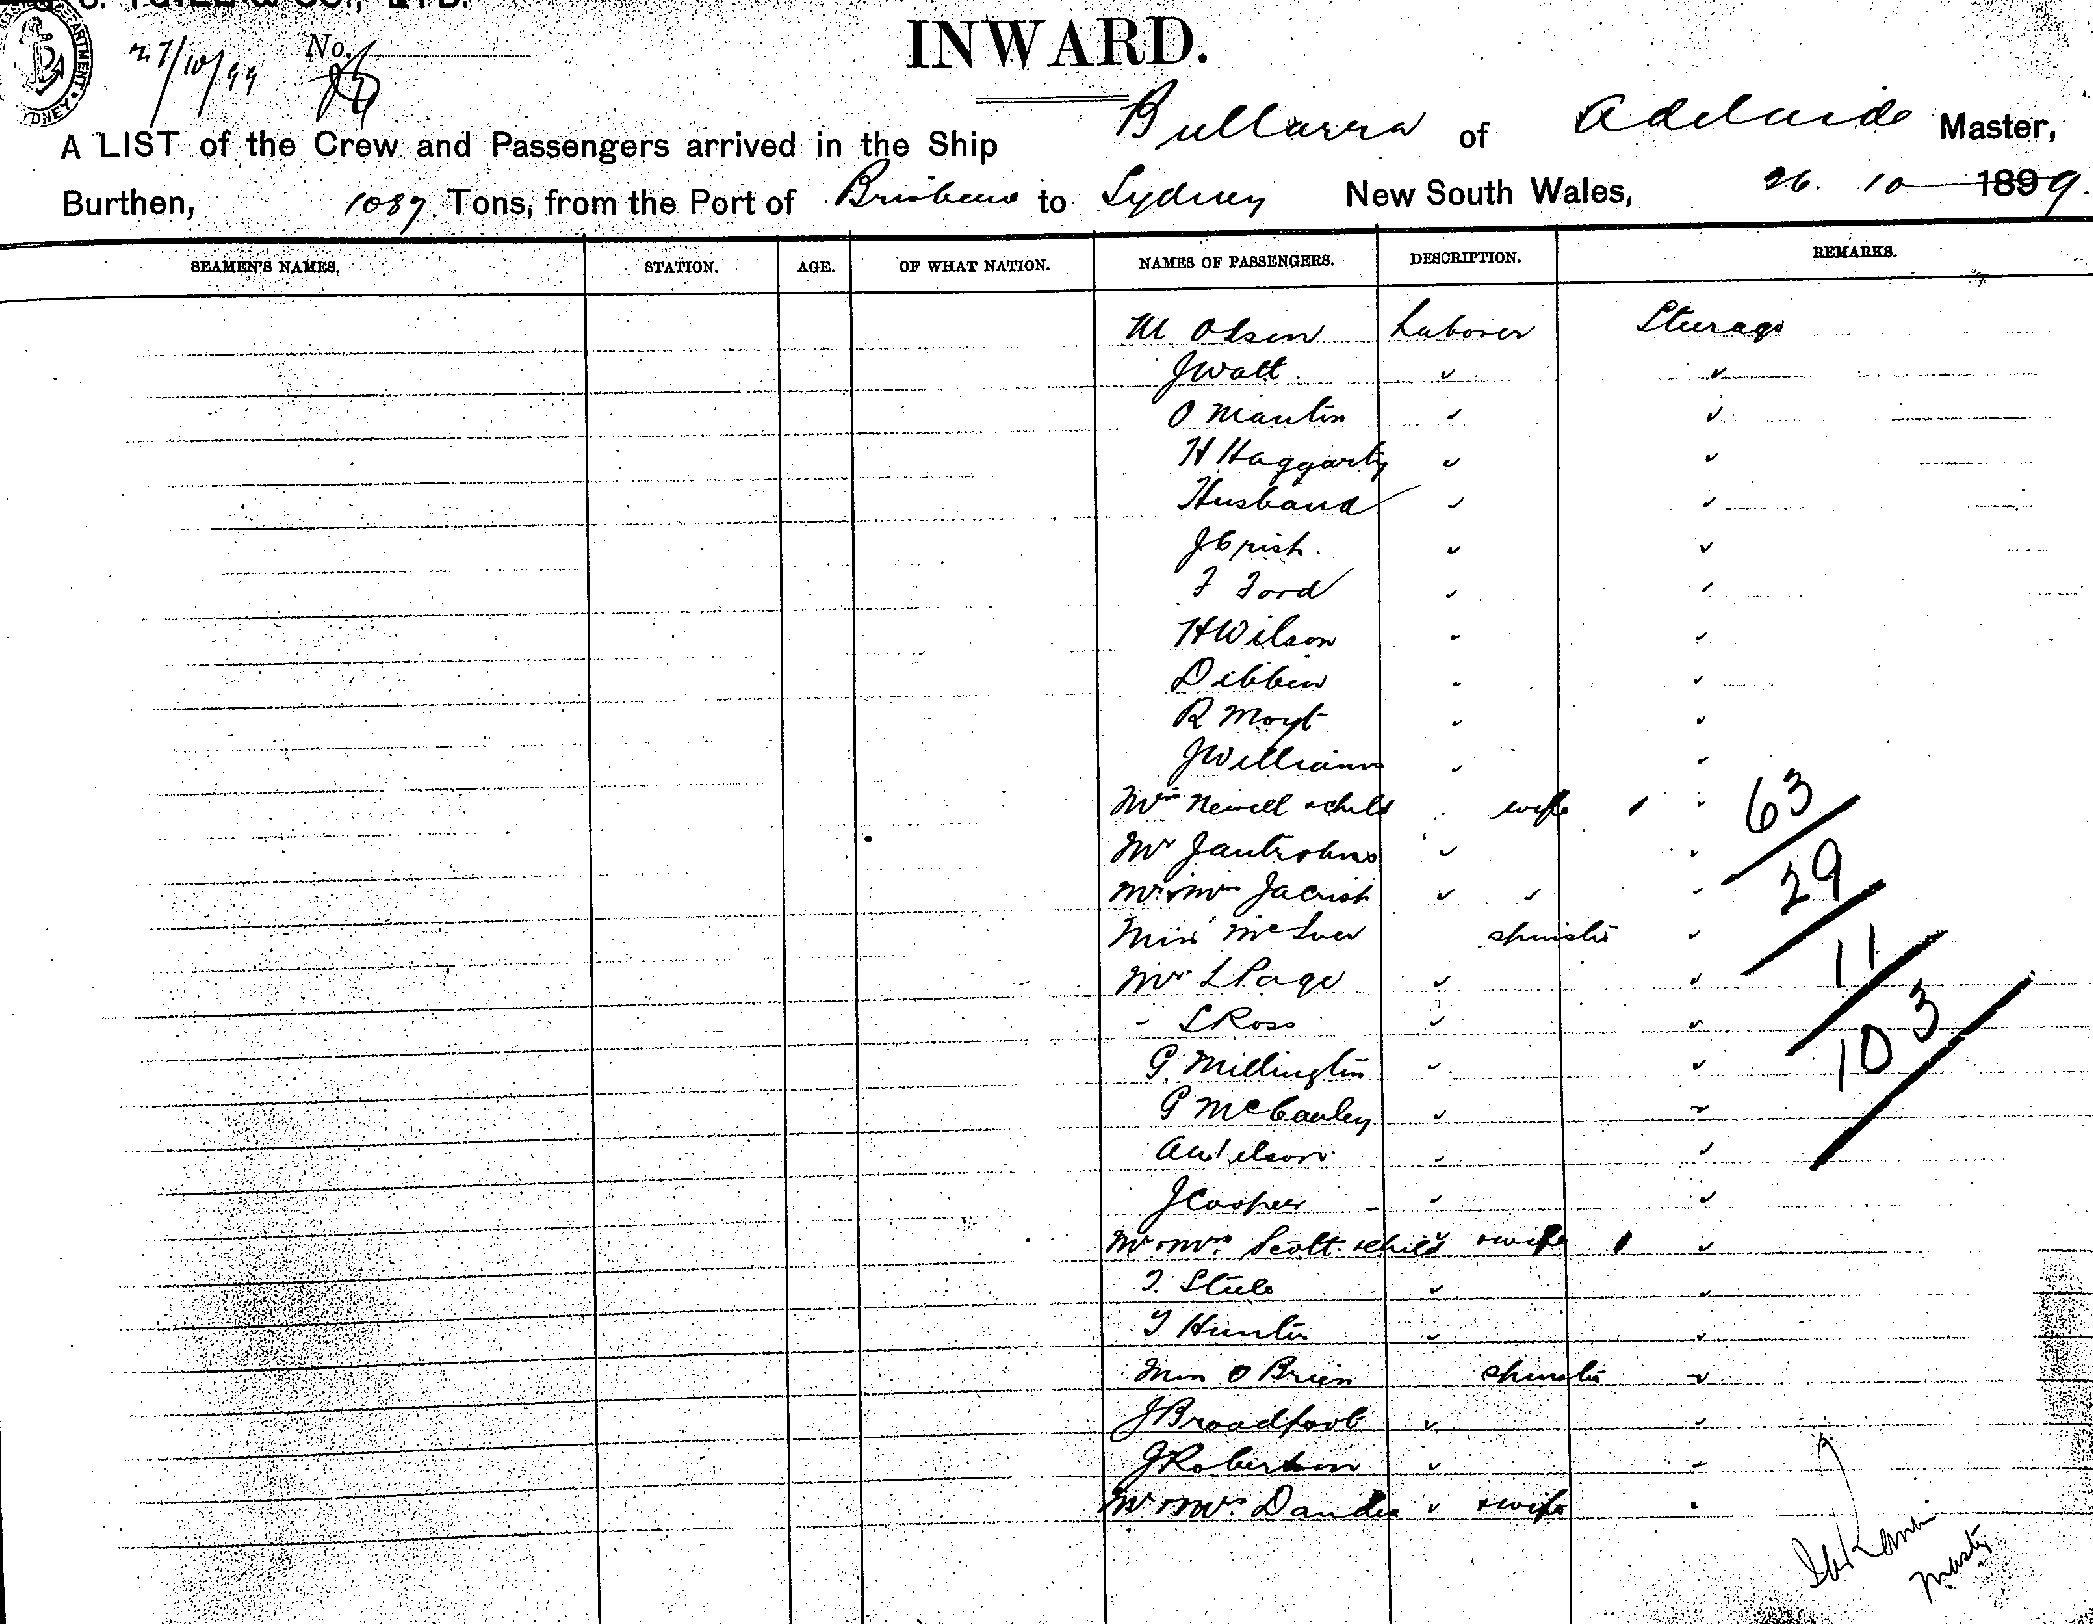 27/10/99 No.
INWARD.
A LIST of the Crew and Passengers arrived in the Ship Bullarra of Adelaide Master,
Burthen, 1087 Tons, from the Port of Brisbane to Sydney New South Wales, 26. 10 1899.
SEAMEN'S NAMES. STATION. AGE. OF WHAT NATION. NAMES OF PASSENGERS. DESCRIPTION. REMARKS.
M Olsen Laborer Steerage
J Watt
O Mantin
H Haggarty
Husband
J Crish.
F Ford
H Wilson
Dibbin
R Moyt
J Williams
Mrs Newell & child wife
63
Mr
29
Mr & Mrs
Miss McIver spinster
11
Mr L Page
- L Ross
103
G. Millington
P McCauley
A Wilson
J Cooper
Mr & Mrs Scott & child & wife
T. Steele
T Hunter
Miss O Brien spinster
J Broadfoot
J Robertson
Mr & Mrs & wife
Master